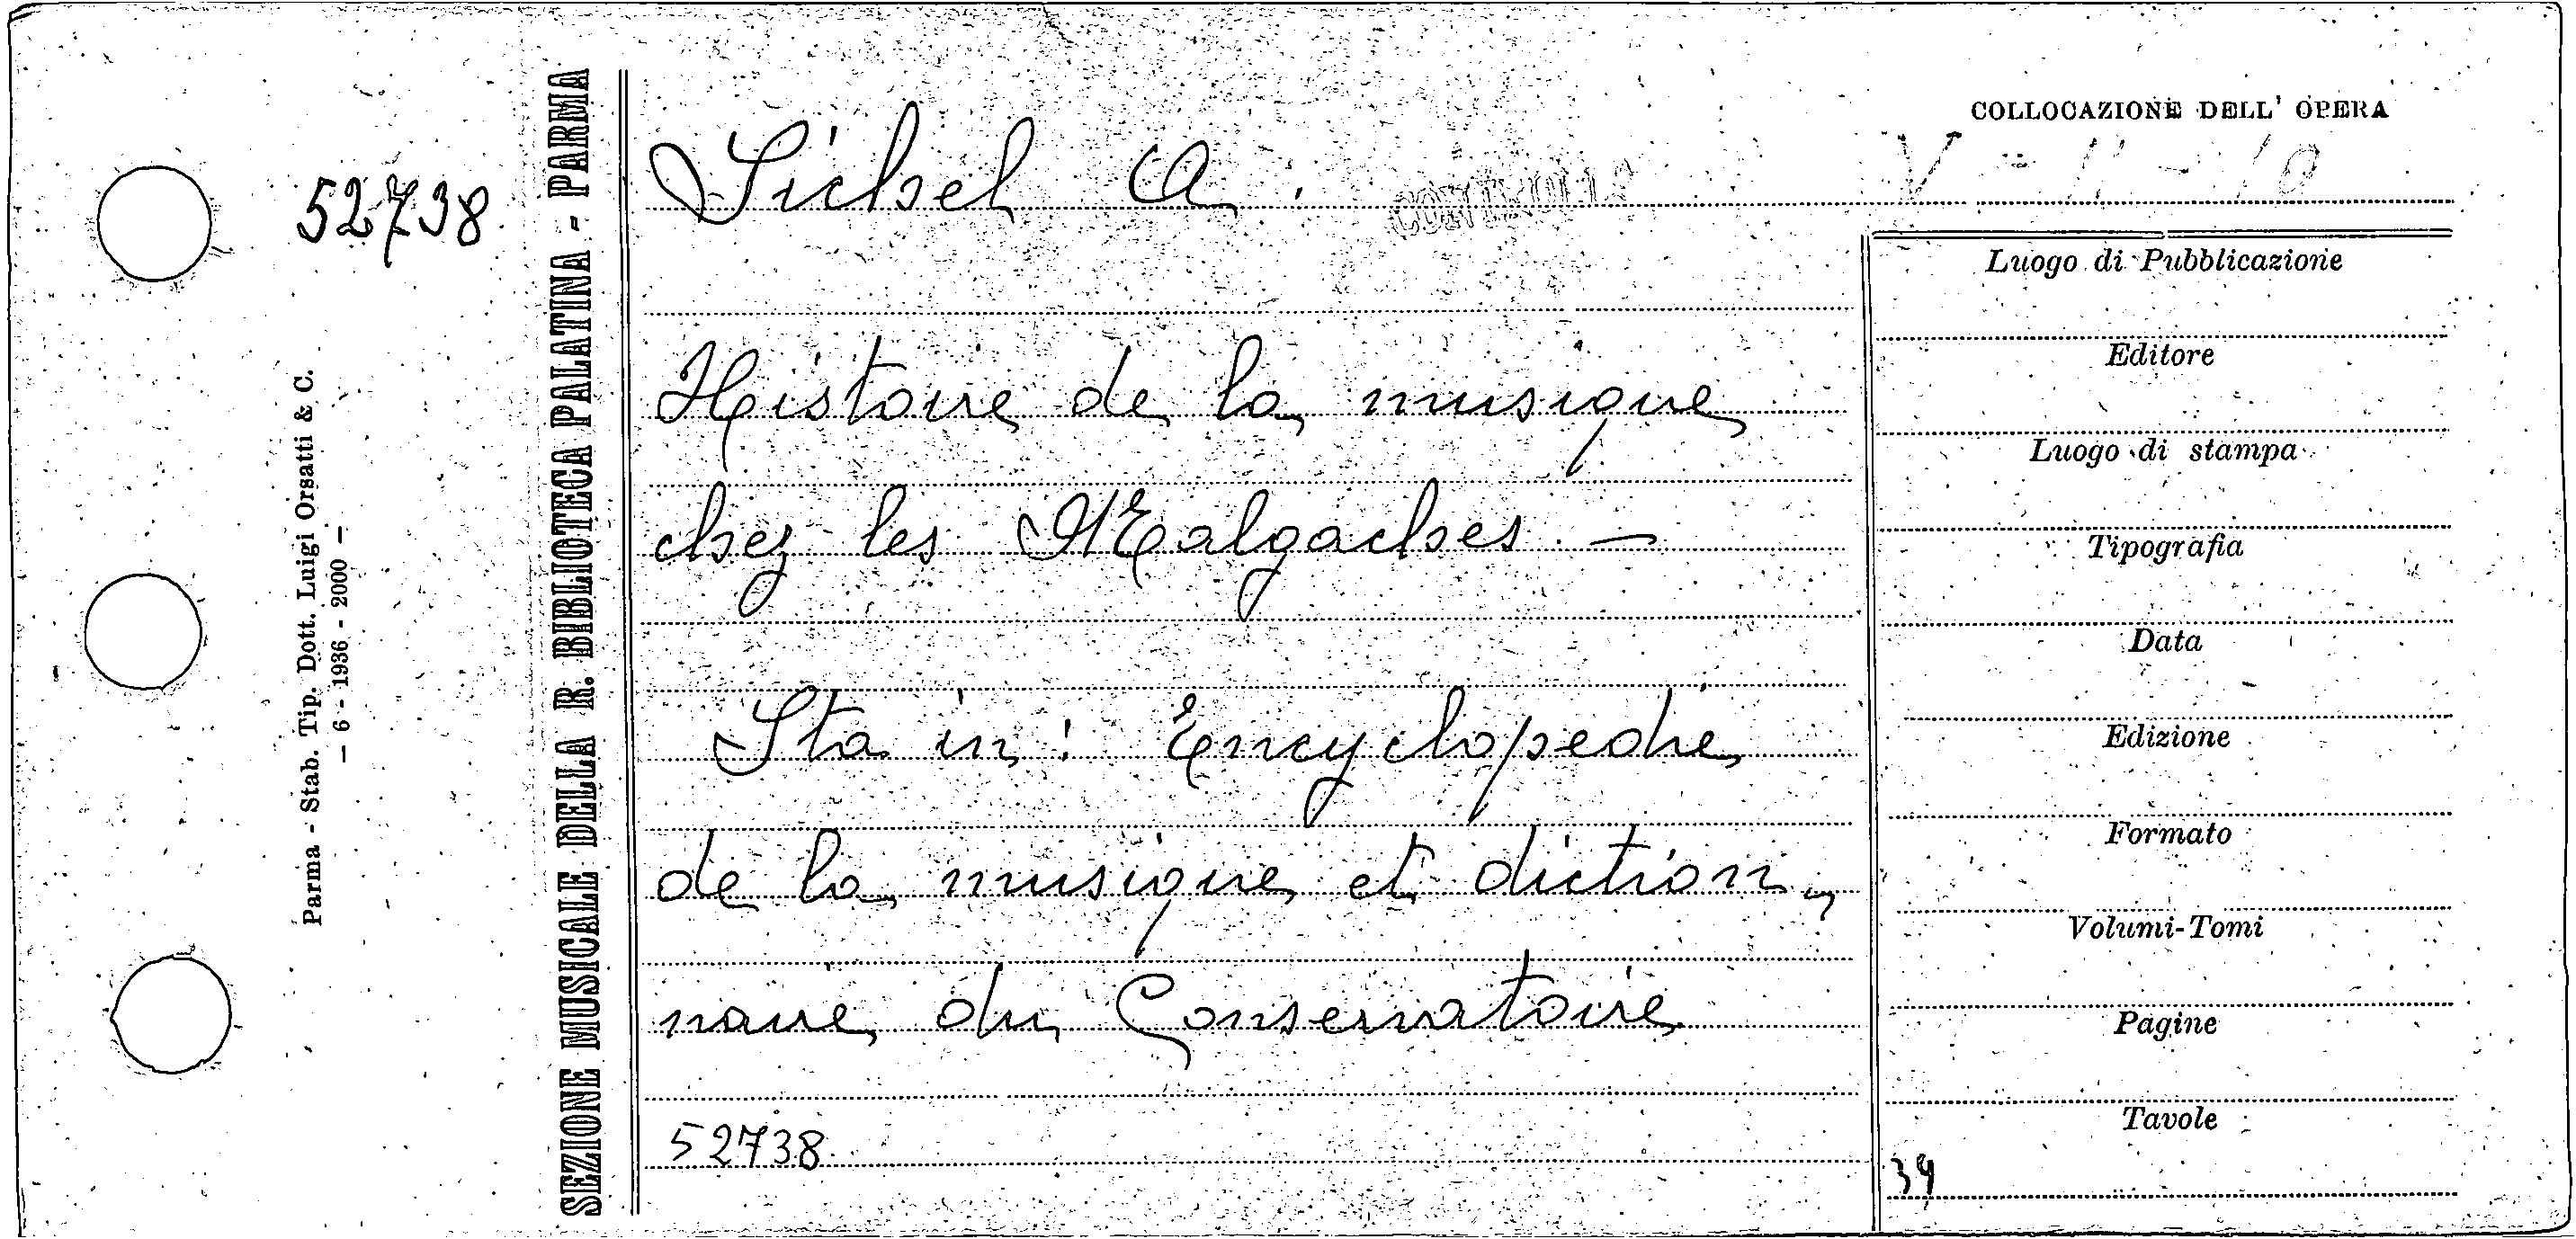 52738
Parma - Stab. Tip. Dott. Luigi Orsatti & C.
— 6 - 1936 - 2000 —
SEZIONE MUSICALE DELLA R. BIBLIOTECA PALATINA - PARMA
Sichel A.
Histoire de la musique
chez les Malgaches. —
Sta in: Encyclopedie
de la musique et diction-
naire du Conservatoire
52738
COLLOCAZIONE DELL' OPERA
Luogo di Pubblicazione
Editore
Luogo di stampa
Tipografia
Data
Edizione
Formato
Volumi-Tomi
Pagine
Tavole
39